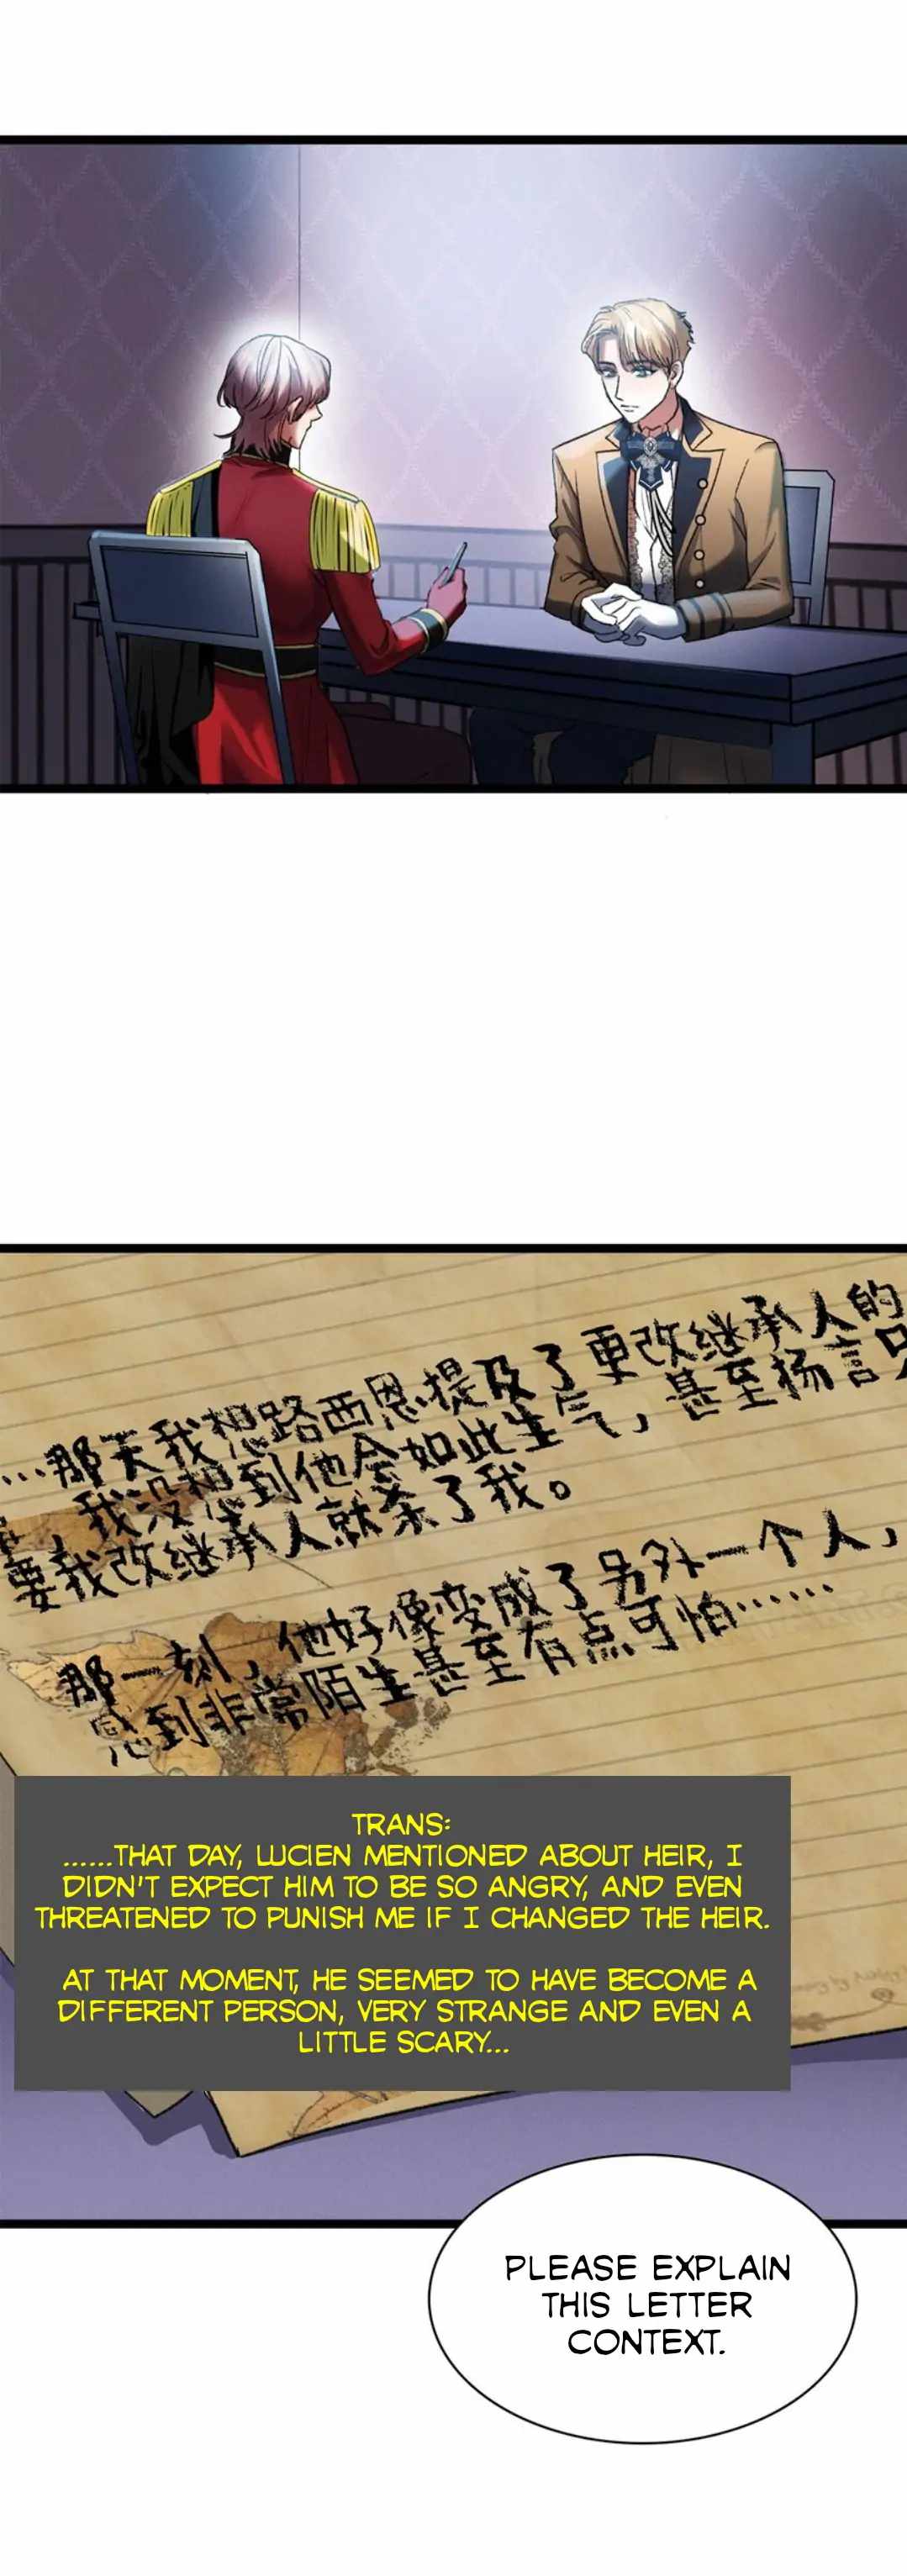 ...那天我想路西恩提及了更改继承人的
，我没想到他会如此生气，甚至扬言只
要我改继承人就杀了我。
那一刻，他好像变成了另外一个人，
感到非常陌生甚至有点可怕……
TRANS:
......THAT DAY, LUCIEN MENTIONED ABOUT HEIR, I
DIDN'T EXPECT HIM TO BE SO ANGRY, AND EVEN
THREATENED TO PUNISH ME IF I CHANGED THE HEIR.
AT THAT MOMENT, HE SEEMED TO HAVE BECOME A
DIFFERENT PERSON, VERY STRANGE AND EVEN A
LITTLE SCARY...
PLEASE EXPLAIN
THIS LETTER
CONTEXT.